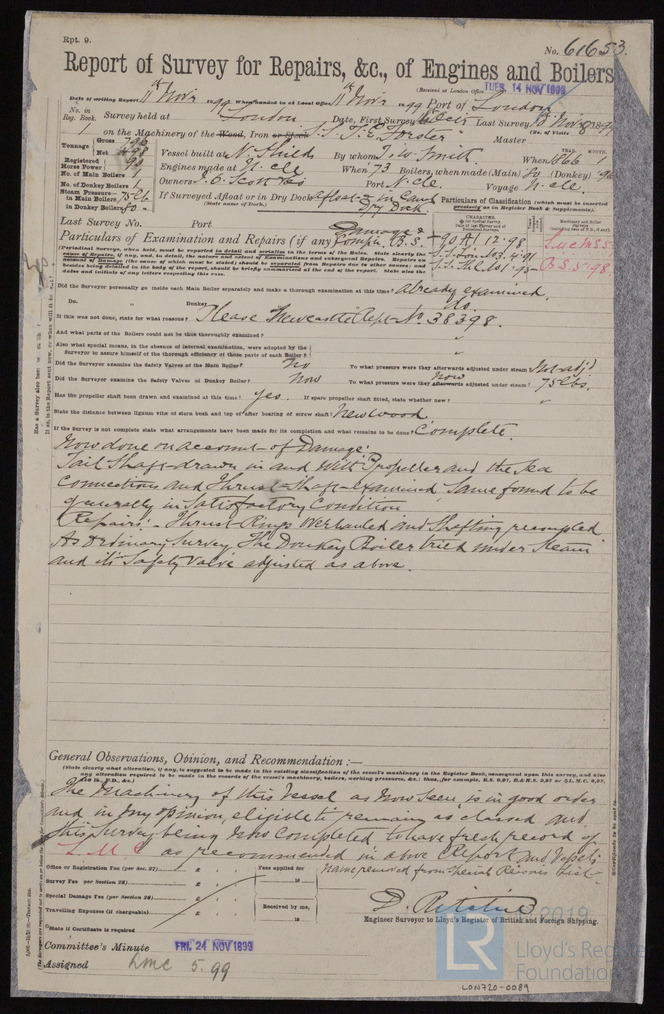 Rpt. 9.
No. 61653.
Report of Survey for Repairs, &c., of Engines and Boilers
(Received at London Office TUES. 14 NOV 1899
Date of writing Report 11th Novr 1899 When handed in at Local Office 11th Novr 1899 Port of London
No. in Reg. Book. Survey held at London Date, First Survey Last Survey 10 Novr 1899
1 on the Machinery of the Wood, Iron or Steel S.S. "T. E. Forster" Master
Tonnage Gross 796 Net 498
Vessel built at N. Shields By whom T. & W. Smith. When 1866 1
Registered Horse Power 99
Engines made at N. cle When 73 Boilers, when made (Main) (Donkey)
No. of Main Boilers
Owners Port N. Cle. Voyage N. cle.
No. of Donkey Boilers 1
Steam Pressure in Main Boilers 75 lb
in Donkey Boilers
If Surveyed Afloat or in Dry Dock Afloat & in Dry Dock
(State name of Dock.)
Particulars of Classification (which must be inserted precisely as in Register Book & Supplements).
Last Survey No. Port
Particulars of Examination and Repairs (if any) Damage & B.S.
90 A1 12.98
B.S 5.98
Did the Surveyor personally go inside each Main Boiler separately and make a thorough examination at this time? already examined.
Do. Donkey Do.
If this was not done, state for what reasons? Please Newcastle Rept. No. 38398.
And what parts of the Boilers could not be thus thoroughly examined? "
Also what special means, in the absence of internal examination, were adopted by the
Surveyor to assure himself of the thorough efficiency of those parts of each Boiler? "
Did the Surveyor examine the Safety Valves of the Main Boiler? No To what pressure were they afterwards adjusted under steam? Not adj'd
Did the Surveyor examine the Safety Valves of Donkey Boiler? Now To what pressure were they now afterwards adjusted under steam? 75 lbs.
Has the propeller shaft been drawn and examined at this time? Yes. If spare propeller shaft fitted, state whether new? "
State the distance between lignum vitæ of stern bush and top of after bearing of screw shaft? New wood.
If the Survey is not complete state what arrangements have been made for its completion and what remains to be done? Complete.
Now done on account of Damage:
Tail Shaft drawn in and with Propeller and the Sea
Connections and Thrust Shaft examined, Same found to be
generally in Satisfactory Condition
Repairs: - Thrust Rings overhauled and Shafting recoupled
As Ordinary Survey, The Donkey Boiler tried under Steam
and its Safety Valve adjusted as above.
General Observations, Opinion, and Recommendation:—
(State clearly what alteration, if any, is suggested to be made in the existing classification of the vessel's machinery in the Register Book, consequent upon this survey, and also
any alteration required to be made in the records of the vessel's machinery, boilers, working pressure, &c.
The Machinery of this Vessel as Now Seen is in good order
and in my opinion, eligible to remain as classed and
this Survey being Now Completed to have fresh record of
L.M.C. as recommended in above Report and Vessel's
name removed from Special Reasons List
Office or Registration Fee (per Sec. 27)
Survey Fee per Section 28)
Special Damage Fee (per Section 28)
Travelling Expenses (if chargeable)
Fees applied for
Received by me,
D. Ritchie
Engineer Surveyor to Lloyd's Register of British and Foreign Shipping.
State if Certificate is required
Committee's Minute FRI. 24 NOV 1899
Assigned LMC 5.99
2019
LR
Lloyd's Register
Foundation
LON720-0089